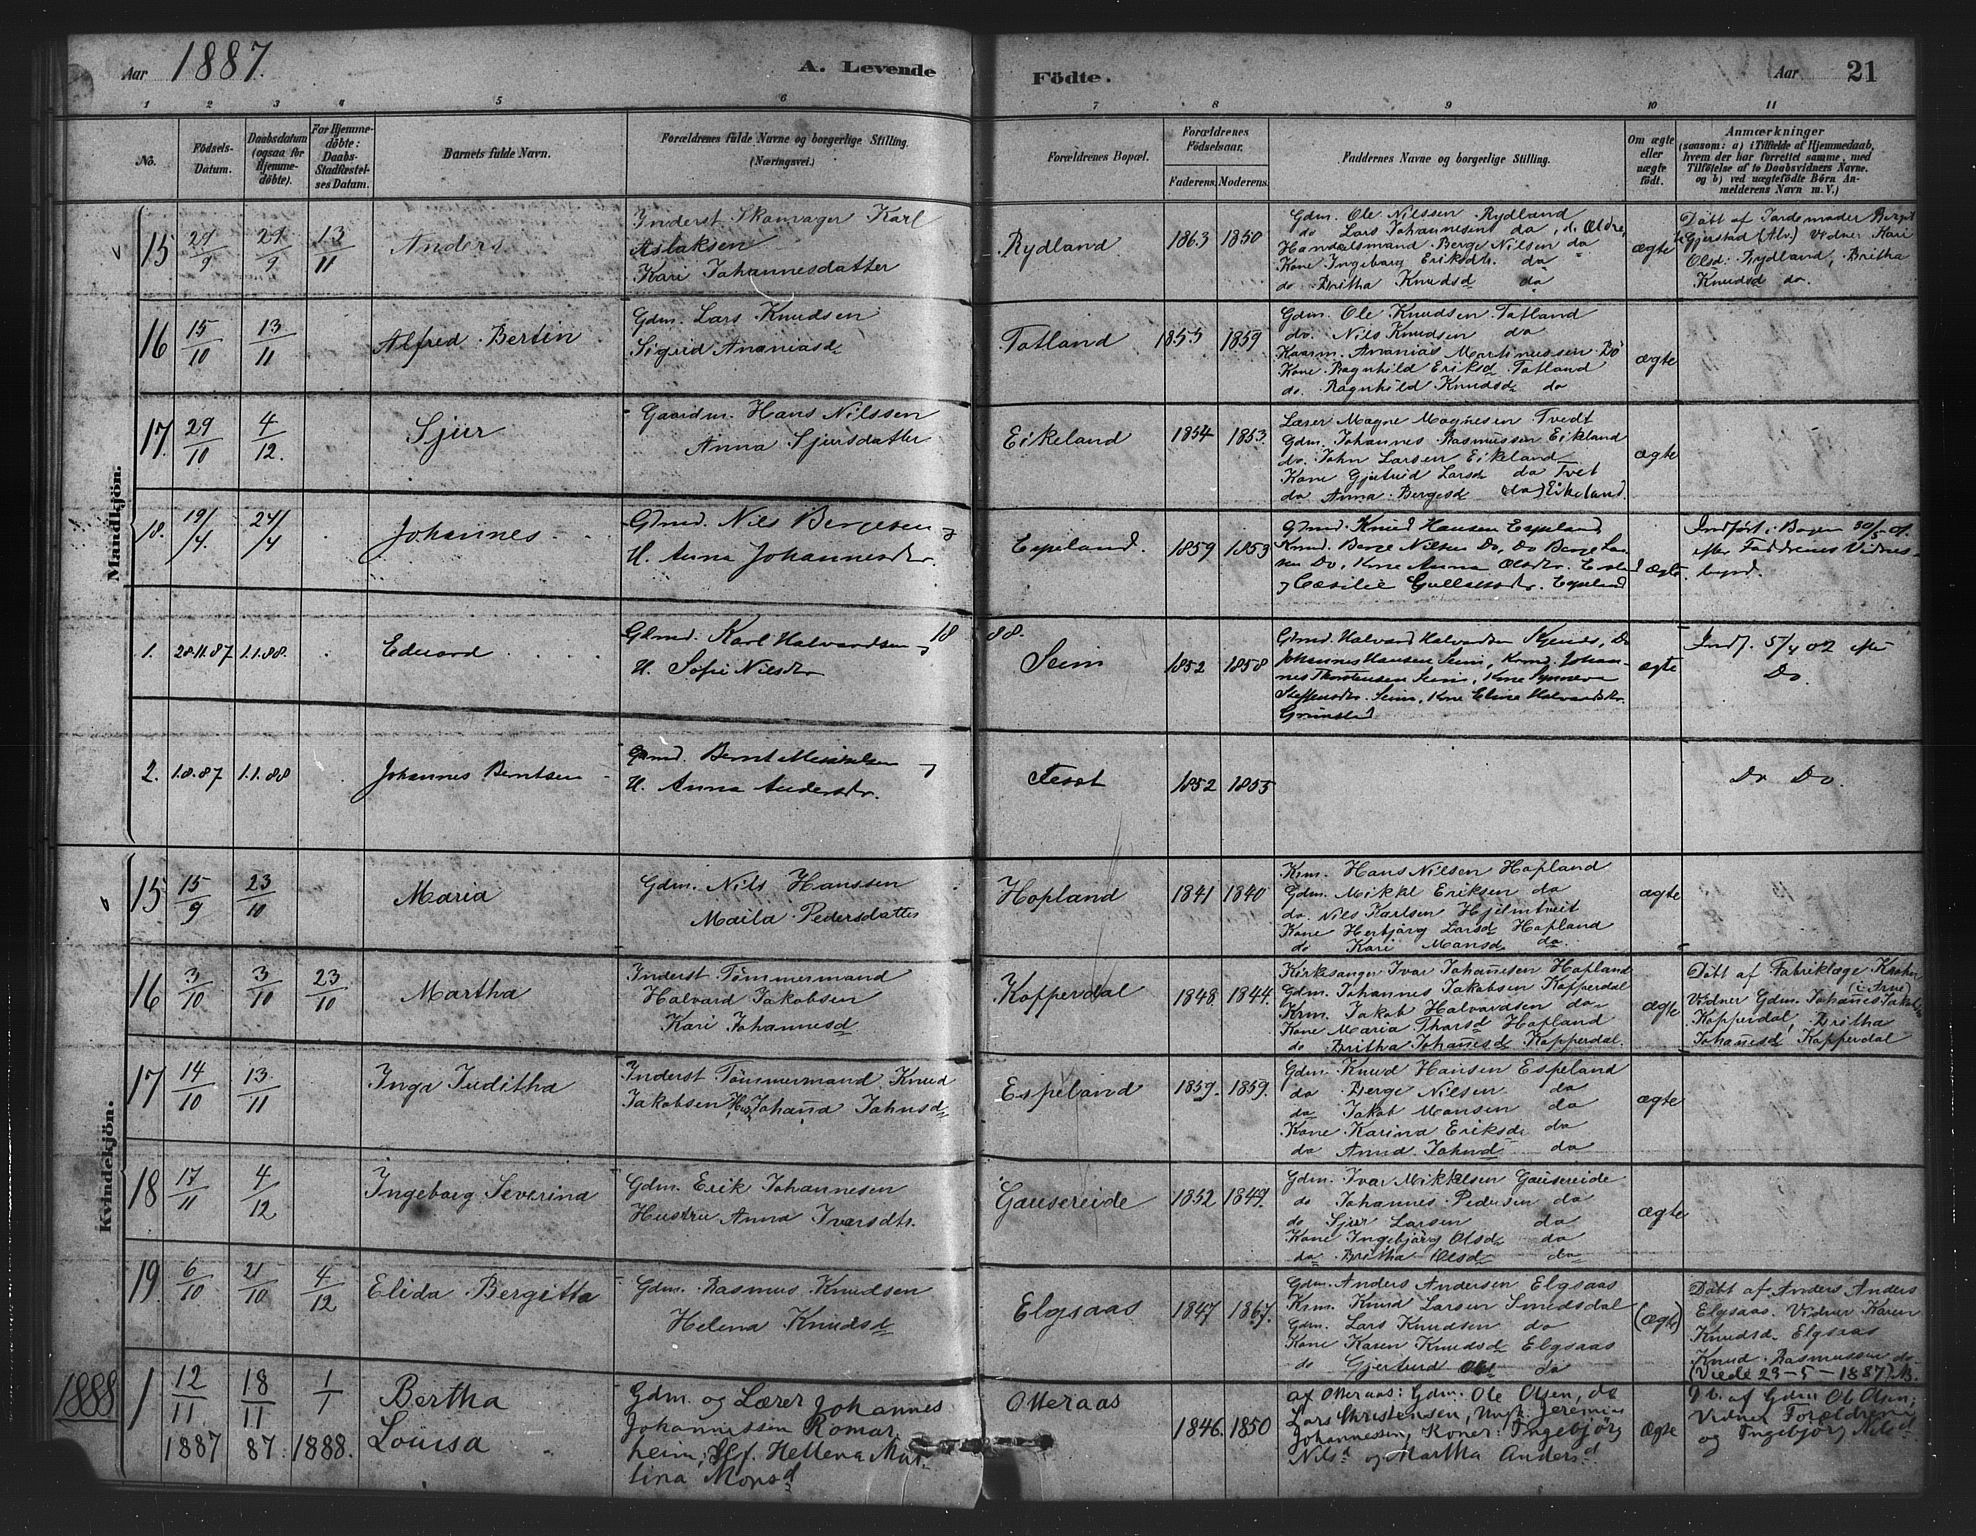 Aar 1887. A. Levende Födte. Aar 21
1 2 3 4 5 6 7 8 9 10 11
No. Födsels-Datum. Daabsdatum (ogsaa for Hjemme-döbte). For Hjemme-döbte: Daabs-Stadfæstel-ses Datum. Barnets fulde Navn. Forældrenes fulde Navne og borgerlige Stilling. (Næringsvei.) Forældrenes Bopæl. Forældrenes Födselsaar. Faderens. Moderens. Faddernes Navne og borgerlige Stilling. Om ægte eller uægte födt. Anmærkninger (saasom: a) i Tilfælde af Hjemmedaab, hvem der har forrettet samme, med Tilföielse af to Daabsvidners Navne. og b) ved uægtefödte Börn An-melderens Navn m. V.)
Mandkjön.
15 29/9 29/9 13/11 Anders
Inderst Skomager Karl
Aslaksen
Kari Johannesdatter
Rydland 1863 1850
Gdm. Ole Nilssen Rydland
do Lars Johannesen do, d. Ældre,
Handelsmand Berge Nilsen do
Kone Ingeborg Eriksdtr. do
do Britha Knudsd do
ægte
Döbt af Jordemoder Berget
Gjerstad (Alv.) Vidner Kari
Olsd: Rydland, Britha
Knudsd do.
16 15/10 13/11 Alfred Bertin
Gdm. Lars Knudsen
Sigrid Ananiasd
Totland 1855 1859
Gdm. Ole Knudsen Totland
do. Nils Knudsen do
Kaarm. Ananias Martinussen Bö
Kone Ragnhild Eriksd Totland
do. Ragnhild Knudsd do
ægte
17. 29/10 4/12. Sjur
Gaardm. Hans Nilssen
Anna Sjursdatter
Eikeland 1854 1853.
Lærer Magne Magnesen Tvedt
Gdm. Johannes Rasmussen Eikland
do. John Larsen Eikeland
Kone Gjertrud Larsd do Tvet
do Anna Bergesd do) Eikeland.
ægte
18. 19/4. 24/4 Johannes
Gdmd. Nils Bergesen og
H. Anna Johannesdtr.
Espeland. 1859 1853
Gdmd. Knud Hansen Espeland,
Krmd. Berge Nilsen Do, Do Berge Lar-
sen Do, Kone Anna Olsdtr.
og Cæsilie Gullaksdtr. Espeland
ægte.
Indfört i Bogen 30/5 01.
efter Faddrenes Vidnes-
byrd.
18 88.
1. 28.11.87 1.1.88. Edvard
Gdmd. Karl Halvardsen og
H. Sofie Nilsdtr
Seim 1852 1858
Gdmd. Halvard Halvardsen, Do
Johannes Hansen Seim, Krmd. Johan-
nes Thorstensen Seim, Kone Synneva
Steffensdtr. Seim, Kone Eline Halvardsdtr
Grimstad
ægte
Indf. 5/4 02 efter
Do.
2. 1.8.87 1.1.88 Johannes Berntsen
Gdmd. Bernt Mikkelsen og
H. Anna Andersdtr.
1852 1855
Do Do.
Kvindekjön.
15 15/9 23/10 Maria
Gdm. Nils Hanssen
Maila Pedersdatter
Hopland 1841 1840
Krm. Hans Nilsen Hopland
Gdm. Mikkl Eriksen do
do. Nils Karlsen Hjelmtveit
Kone Herbjörg Larsd Hopland
do Kari Monsd do.
ægte
16 3/10 3/10 23/10 Martha
Inderst Tömmermand
Halvard Jakobsen
Kari Johannesd
Kopperdal 1848 1844.
Kirkesanger Ivar Johanesen Hopland
Gdm. Johannes Jakobsen Kopperdal
Krm. Jakob Halvardsen do
Kone Maria Thorsd Hopland
do Britha Johanesd Kopperdal.
ægte
Döbt af Fabriklæge Krohn
(i Arne)
Vidner Gdm. Johanes Jakobs
Kopperdal, Britha
Johanesd Kopperdal
17 14/10 13/11 Inga Juditha
Inderst Tömmermand Knud
Jakobsen Johanna Johnsd
Espeland 1857. 1859.
Gdm. Knud Hansen Espeland
do Berge Nilsen do
do Jakob Monsen do
Kone Karina Eriksd do
do Anna Johnsd do
ægte
18 17/11 4/12 Ingeborg Severina
Gdm. Erik Johannesen
Hustru Anna Ivarsdtr.
Gausereide 1852 1849.
Gdm. Ivar Mikkelsen Gausereide
do Johannes Pedersen do
do Sjur Larsen do
Kone Ingebjörg Olsd do
do Britha Olsd do
ægte
19. 6/10 21/10 4/12 Elida Bergitta
Gdm. Rasmus Knudsen
Helena Knudsd
Elgsaas 1847 1867.
Gdm. Anders Andersen Elgsaas
Krm. Knud Larsen Smedsdal
Gdm. Lars Knudsen do
Kone Karen Knudsd Elgsaas
do Gjertrud Olsd do
(ægte)
Döbt af Anders Anders
Elgsaas. Vidner Karen
Knudsd. Elgsaas
Knud Rasmussen do
(Viede 29-5-1887)
1888
1 12/11 1887 18/11 87. 1/1 1888. Bertha
Louisa
Gdm. og Lærer Johannes
Johannessen Romar-
heim, Hf. Hellena Mar-
tina Monsd
Otteraas 1846. 1850
af Otteraas: Gdm. Ole Olsen, do
Lars Christensen, Ungk. Jeremias
Johannessen, Koner: Ingebjörg
Nilsd og Martha Andersd
Ægte
af Gdm Ole Olsen;
Vidner Forældrene
og Ingebjörg Nilsd